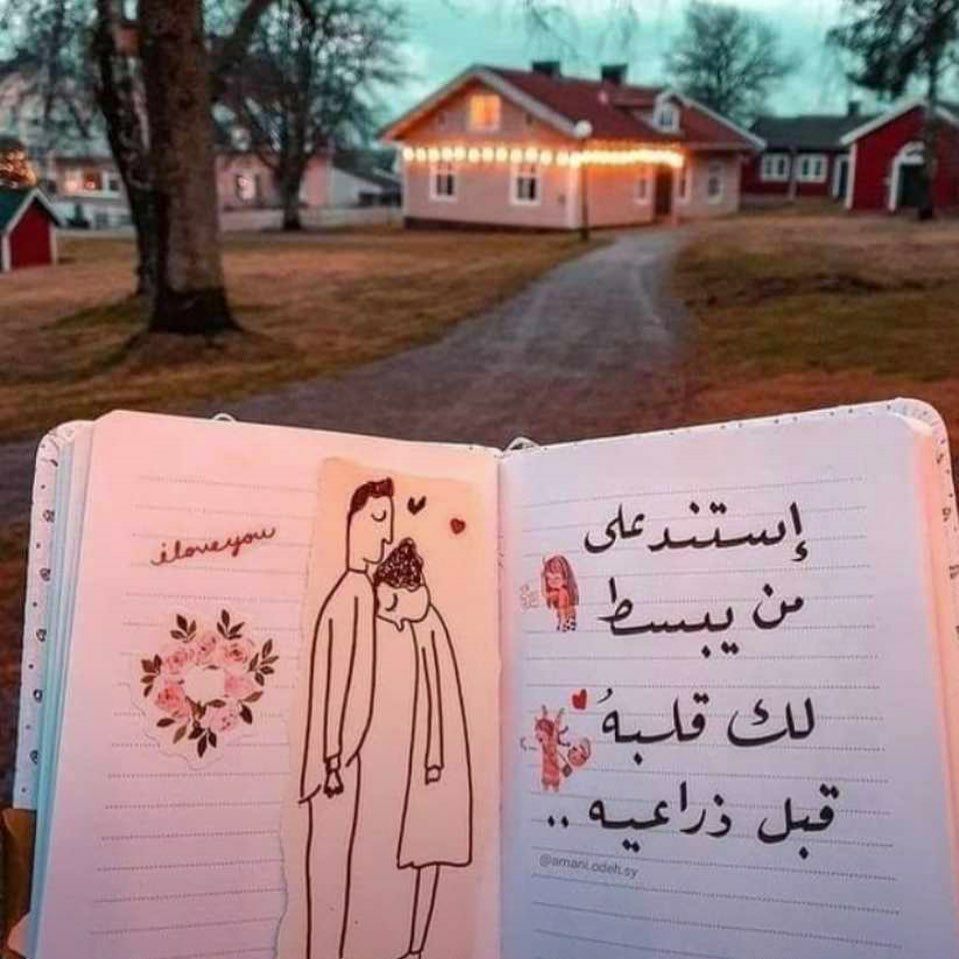 i love you
إستند على
من يبسط
لك قلبهُ
قبل ذراعيه ..
@amani.odeh.sy